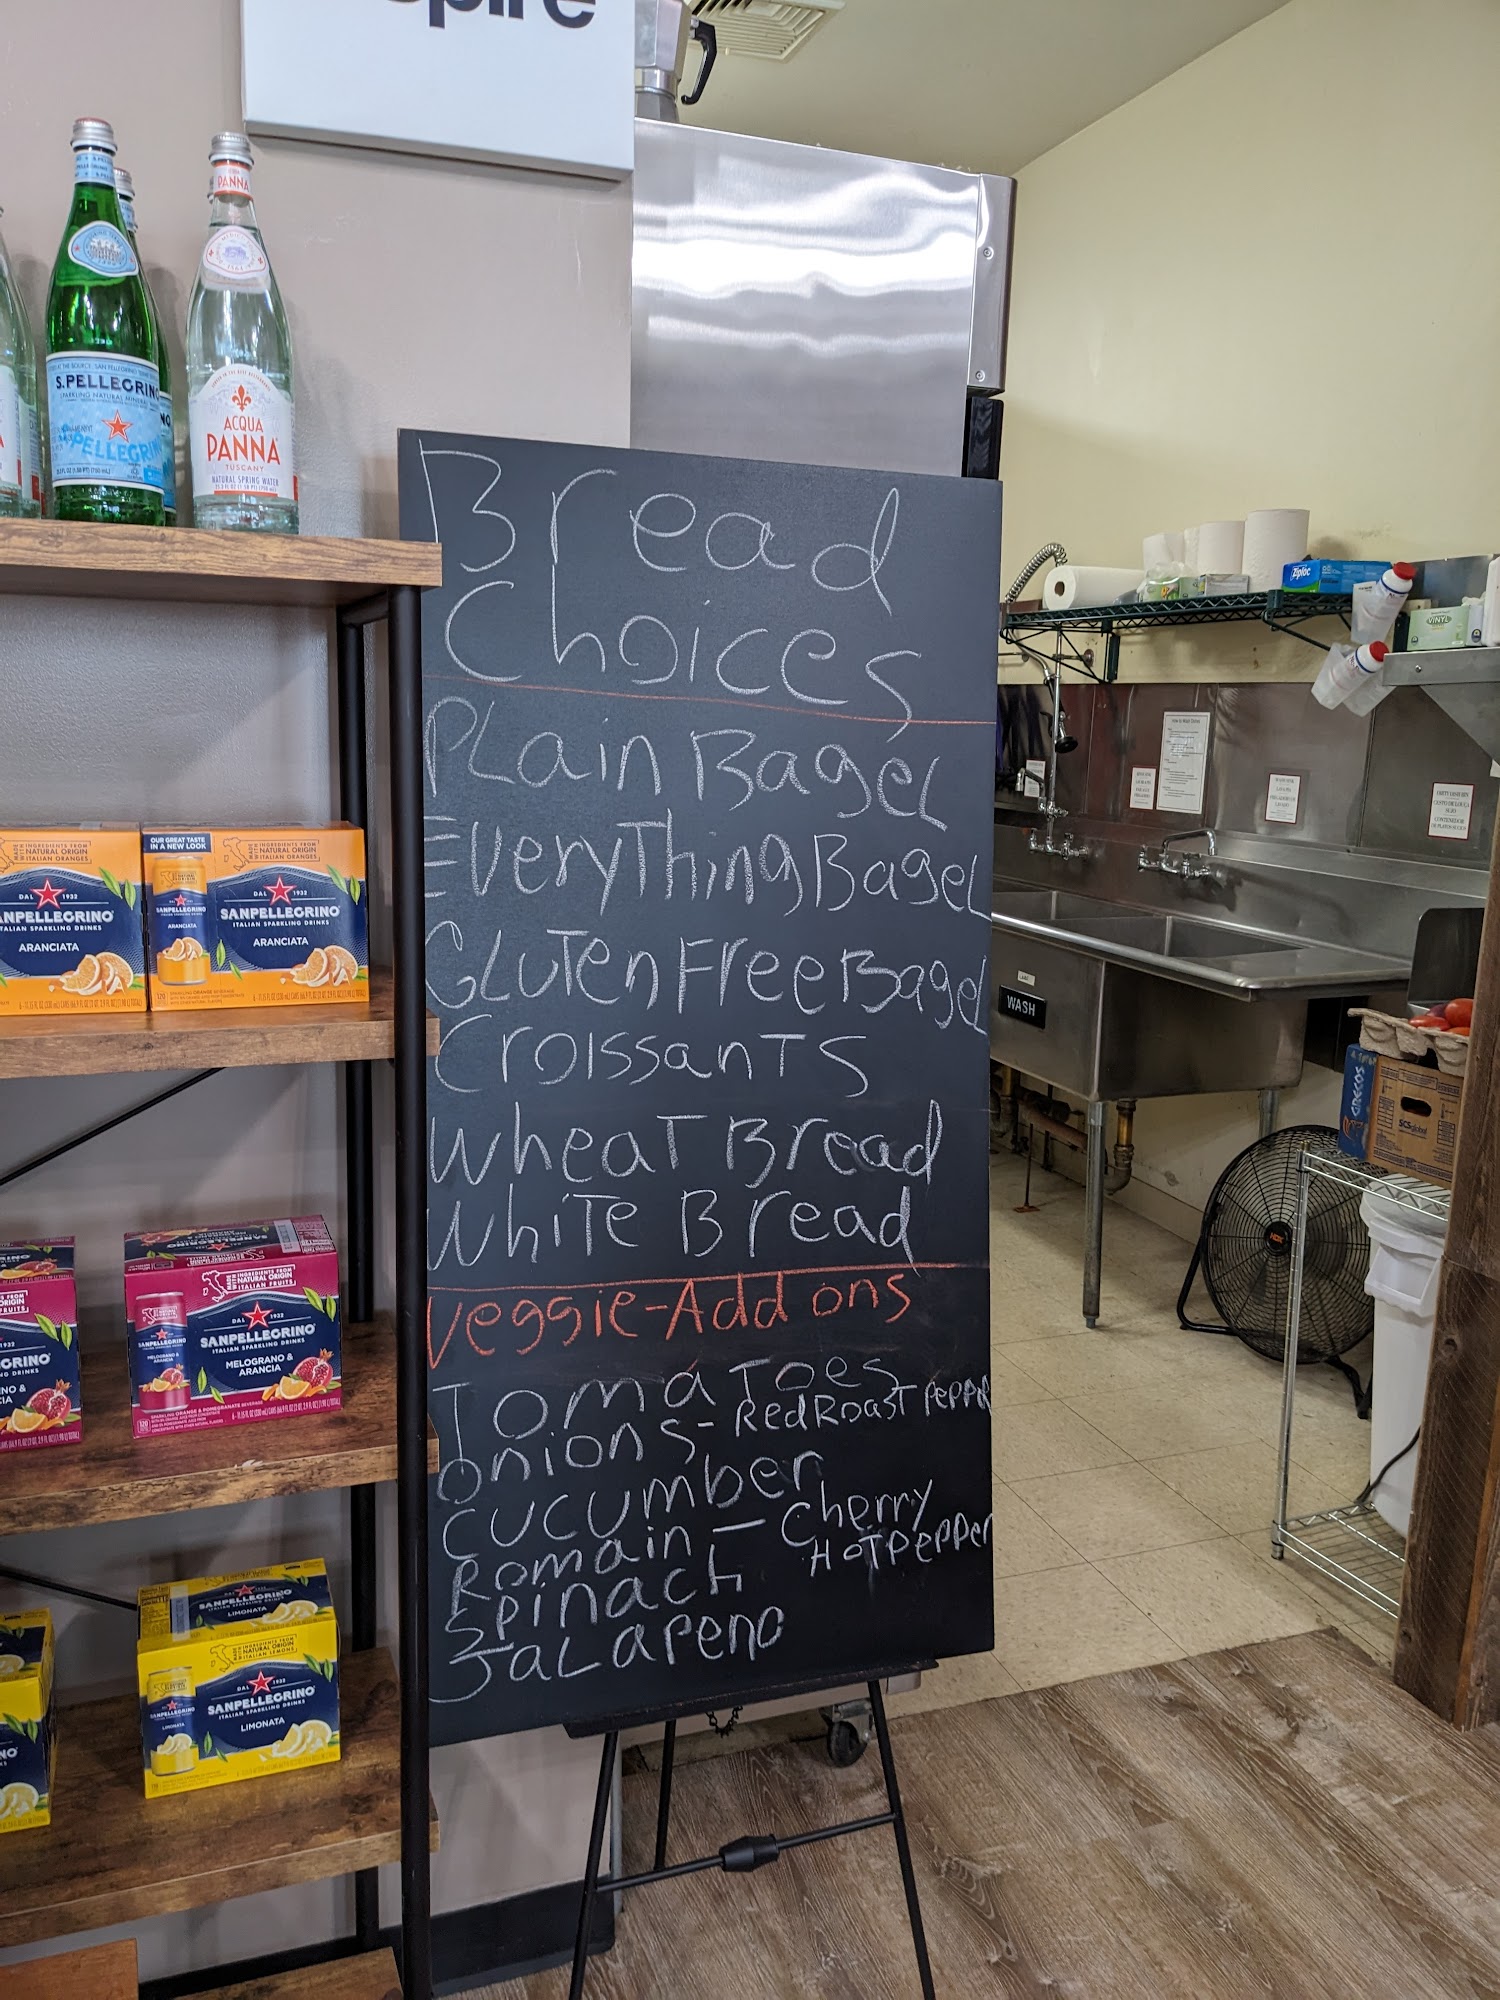 spire
PANNA
S.PELLEGRINO
SPARKLING NATURAL MINERAL
ACQUA
PANNA
TUSCANY
NATURAL SPRING WATER
Bread
Choices
Plain Bagel
Everything Bagel
Gluten Free Bagel
Croissants
Wheat Bread
White Bread
Veggie-Add ons
Tomatoes
Onions - Red Roast Pepper
Cucumber
Romain - Cherry
Hot Pepper
Spinach
Jalapeno
OUR GREAT TASTE
IN A NEW LOOK
MADE WITH
INGREDIENTS FROM
NATURAL ORIGIN
ITALIAN ORANGES
DAL 1932
SANPELLEGRINO
ITALIAN SPARKLING DRINKS
ARANCIATA
INGREDIENTS FROM
NATURAL ORIGIN
ITALIAN FRUITS
DAL 1932
SANPELLEGRINO
ITALIAN SPARKLING DRINKS
MELOGRANO &
ARANCIA
SANPELLEGRINO
LIMONATA
INGREDIENTS FROM
NATURAL ORIGIN
ITALIAN LEMONS
DAL 1932
SANPELLEGRINO
ITALIAN SPARKLING DRINKS
LIMONATA
Ziploc
VINYL
WASH
SCSglobal